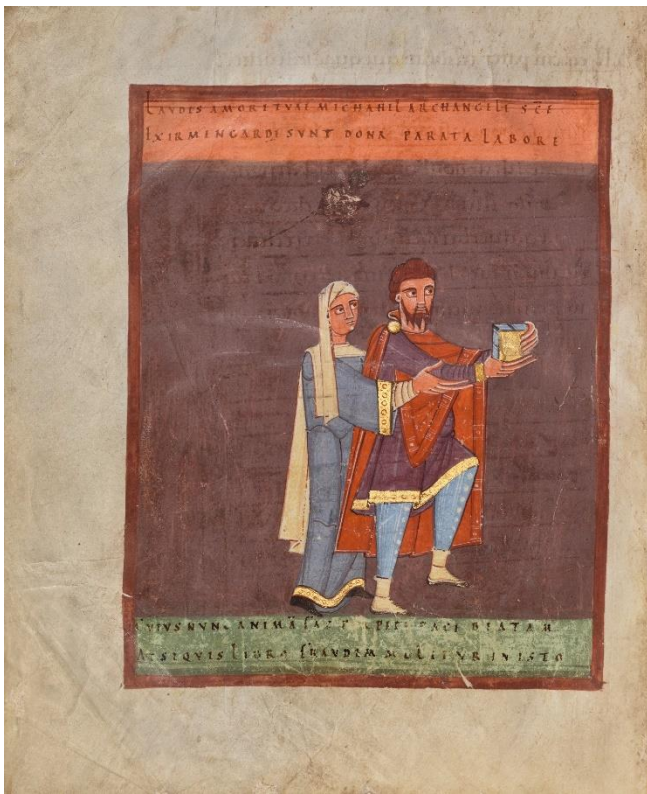 LAVDIS AMORE TVAE MICHAHEL ARCHANGELE SCE
EX IRMENGARDI SVNT DONA PARATA LABORE
CVIVS NVNC ANIMA FAC BEATAM
AT SI QVIS LIBRO FRAVDEM MOLITVR IN ISTO